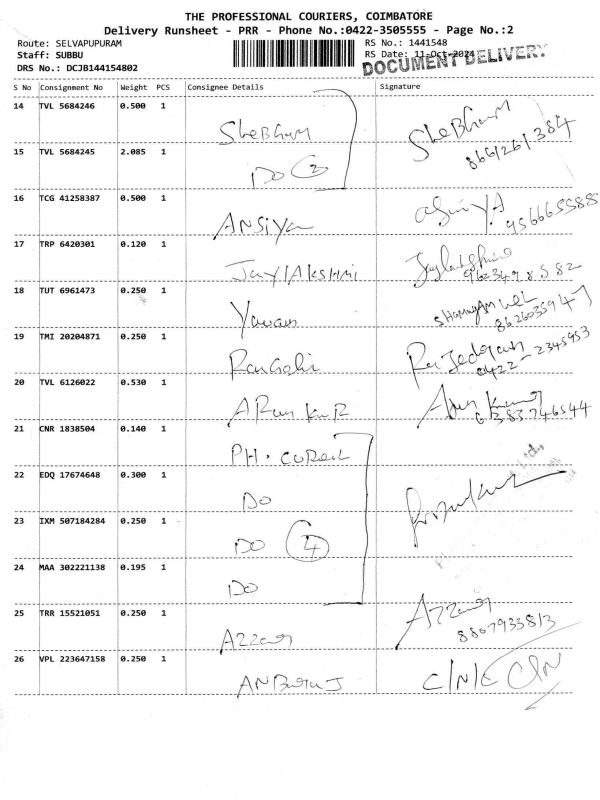 THE PROFESSIONAL COURIERS, COIMBATORE
Delivery Runsheet - PRR - Phone No.:0422-3505555 - Page No.:2
Route: SELVAPUPURAM RS No.: 1441548
Staff: SUBBU RS Date: 11-Oct-2024
DRS No.: DCJB144154802 DOCUMENT DELIVERY
S No Consignment No Weight PCS Consignee Details Signature
14 TVL 5684246 0.500 1
Shebham Shebham
15 TVL 5684245 2.085 1 8661261384
DO 2
16 TCG 41258387 0.500 1
ANSiya
17 TRP 6420301 0.120 1 9566655885
JAYlAkshmi
18 TUT 6961473 0.250 1 9623498582
Yavam
19 TMI 20204871 0.250 1
0422-2345953
20 TVL 6126022 0.530 1
ARun kuR Arun Kumar
6383746544
21 CNR 1838504 0.140 1
PH.
22 EDQ 17674648 0.300 1 Ltd.,
DO
23 IXM 507184284 0.250 1
DO 4
24 MAA 302221138 0.195 1
DO
25 TRR 15521051 0.250 1
Azzar Azzar
8807933813
26 VPL 223647158 0.250 1
C/N/E C/N